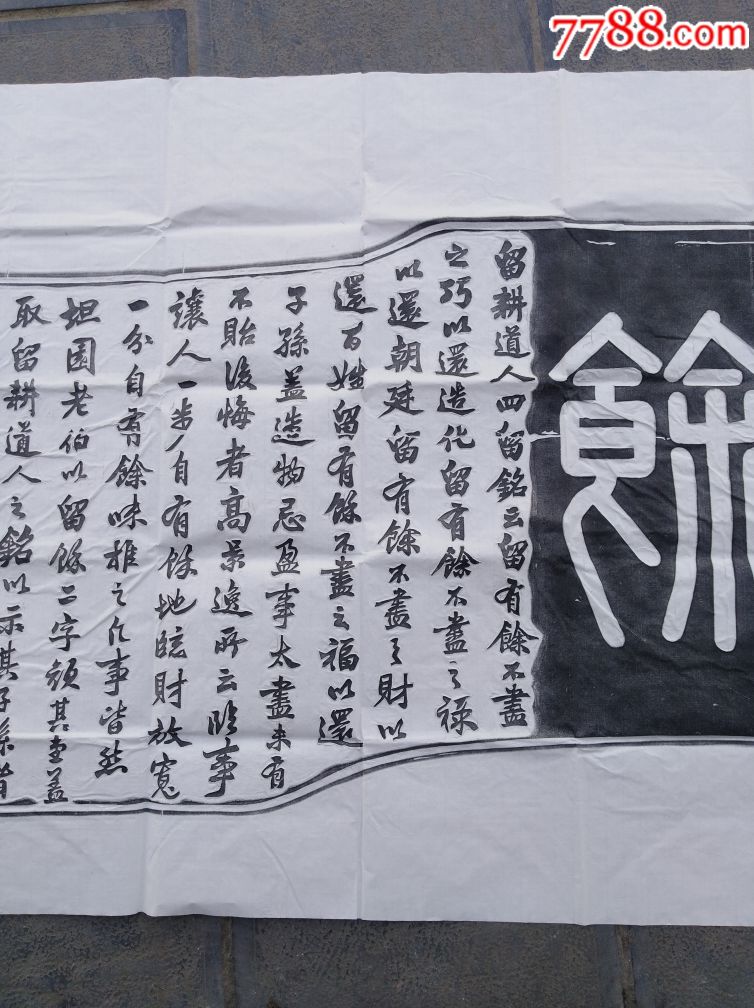 7788.com
餘
留耕道人四留銘云留有餘不盡
之巧以還造化留有餘不盡之祿
以還朝廷留有餘不盡之財以
還百姓留有餘不盡之福以還
子孫蓋造物忌盈事太盡未有
不貽後悔者高景逸所云臨事
讓人一步自有餘地臨財放寬
一分自有餘味推之凡事皆然
坦園老伯以留餘二字顏其堂蓋
取留耕道人之銘以示其子孫昔